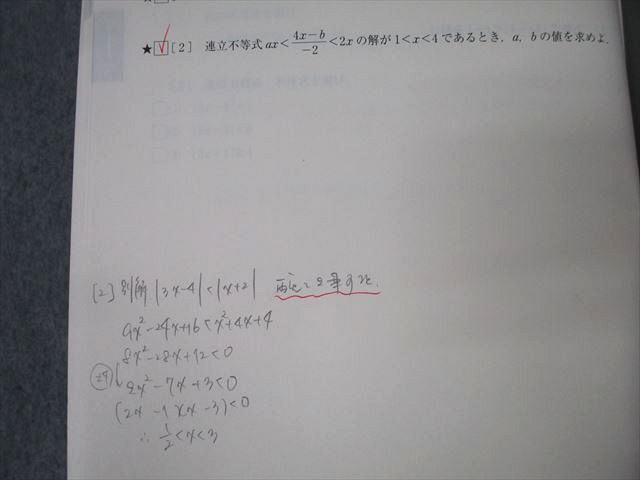 ★☑[2] 連立不等式 ax<\frac{4x-b}{-2}<2x の解が1<x<4であるとき，a，b の値を求めよ．
[2] 別解 |3x-4|<|x+2| 両辺を2乗すると.
9x²-24x+16<x²+4x+4
8x²-28x+12<0
÷4 2x²-7x+3<0
(2x-1)(x-3)<0
∴ \frac{1}{2}<x<3